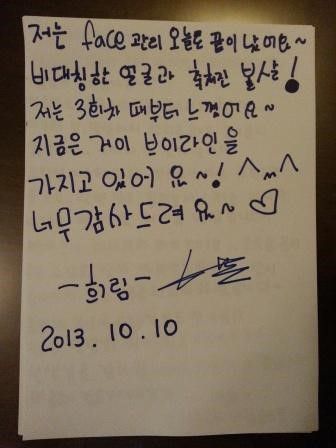 저는 face 관리 오늘로 끝이 났어요~
비대칭한 얼굴과 축쳐진 볼살!
저는 3회차 때부터 느꼈어요~
지금은 거이 브이라인을
가지고 있어 요~! ^~^
너무 감사드려 요~ ♡
- 희림 -
2013. 10. 10